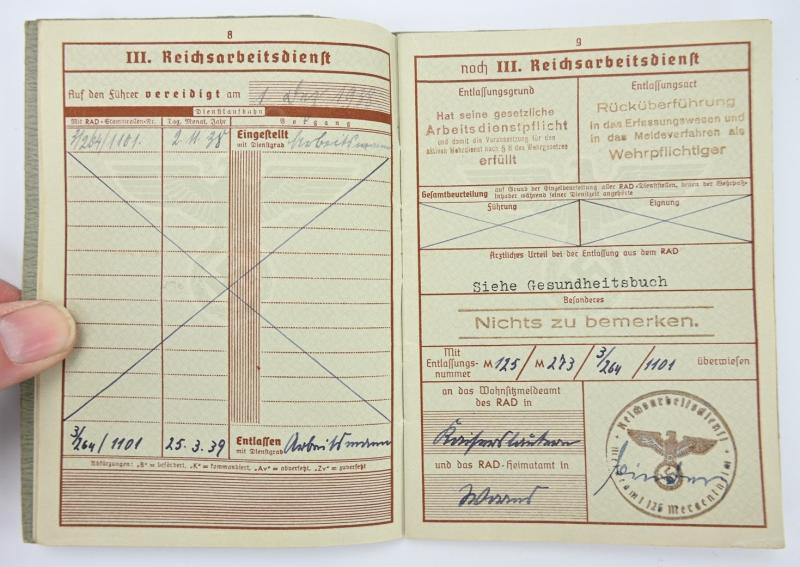 8
III. Reichsarbeitsdienst
Auf den Führer vereidigt am
Dienstlaufbahn
Mit RAD-Stammrollen-Nr. Tag, Monat, Jahr
3/264/1101. 2.11.38 Eingestellt Arbeitsmann
mit Dienstgrad
3/264/1101 25.3.39 Entlassen Arbeitsmann
mit Dienstgrad
Abkürzungen: „B" = befördert, „K" = kommandiert, „Av" = abversetzt, „Zv" = zuversetzt
9
noch III. Reichsarbeitsdienst
Entlassungsgrund
Hat seine gesetzliche
Arbeitsdienstpflicht
und damit die Voraussetzung für den
aktiven Wehrdienst nach § 8 des Wehrgesetzes
erfüllt
Entlassungsart
Rücküberführung
in das Erfassungswesen und
in das Meldeverfahren als
Wehrpflichtiger
Gesamtbeurteilung auf Grund der Einzelbeurteilung aller RAD-Dienststellen, denen der Wehrpaß-
Inhaber während seiner Dienstzeit angehörte
Führung Eignung
Ärztliches Urteil bei der Entlassung aus dem RAD
Siehe Gesundheitsbuch
Besonderes
Nichts zu bemerken.
Mit
Entlassungs- M 125 / M 273 / 3/264 / 1101 überwiesen
nummer
an das Wohnsitzmeldeamt
des RAD in
Kaiserslautern
und das RAD-Heimatamt in
Worms
Reichsarbeitsdienst
Meldeamt 126 Mergentheim